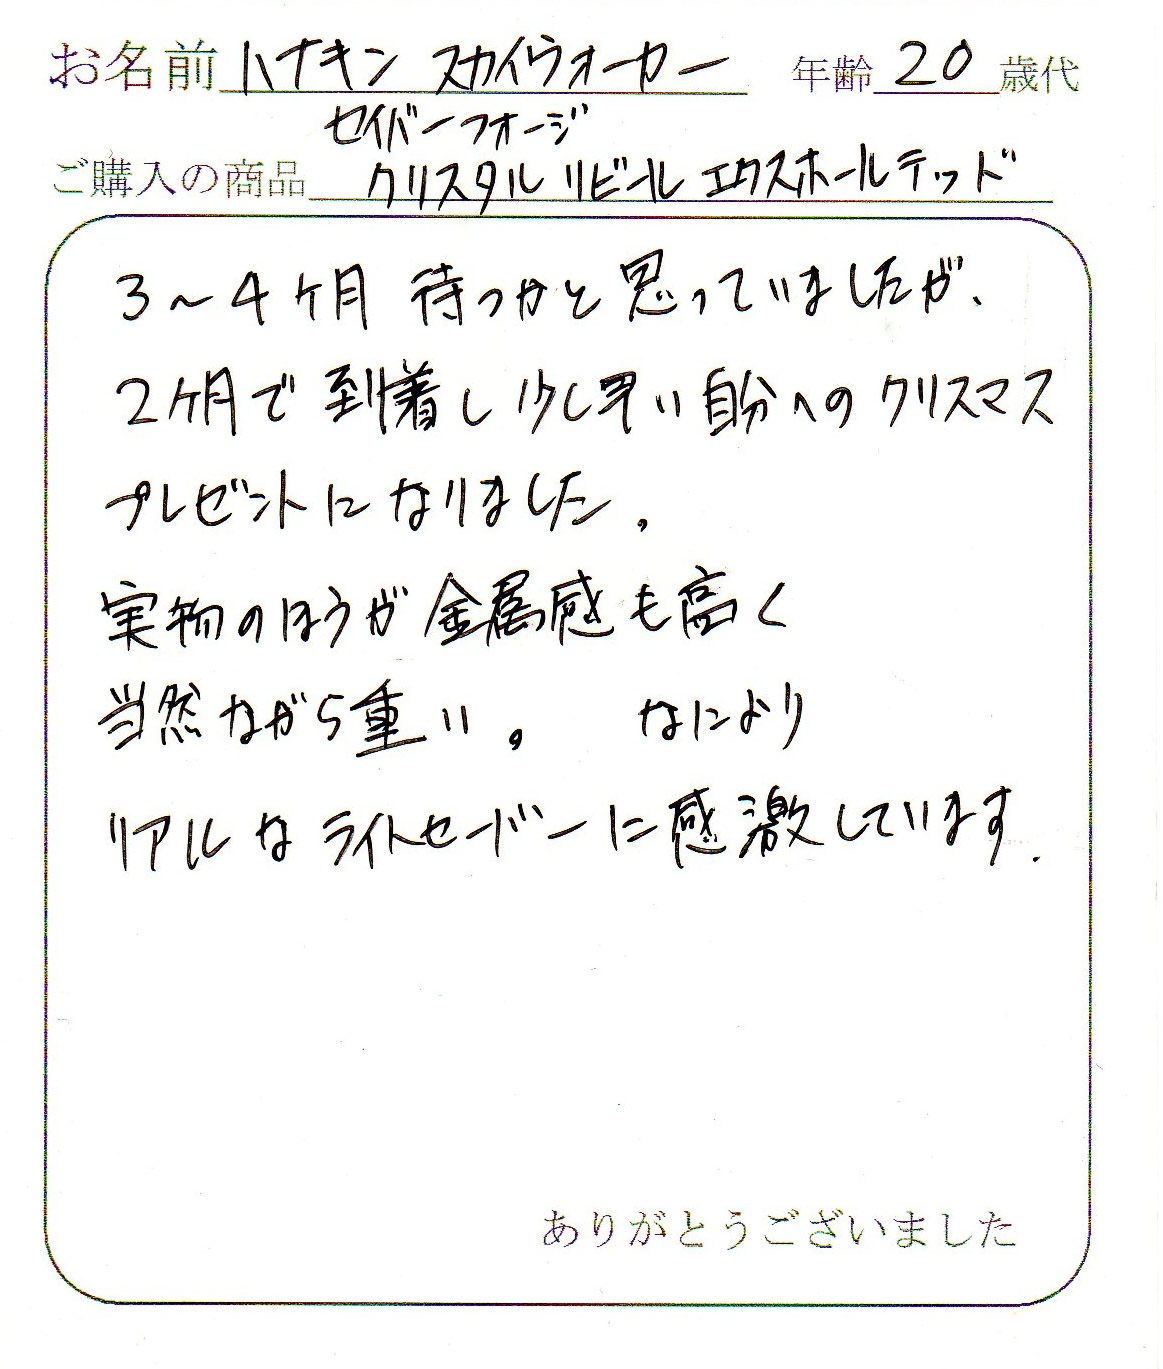 お名前 ハナキン スカイウォーカー 年齢 20 歳代
セイバーフォージ
ご購入の商品 クリスタル リビール エクスホールテッド
3～4ヶ月 待つかと思っていましたが、
2ヶ月で到着し少し早い自分へのクリスマス
プレゼントになりました。
実物のほうが金属感も高く
当然ながら重い。 なにより
リアルなライトセーバーに感激しています.
ありがとうございました